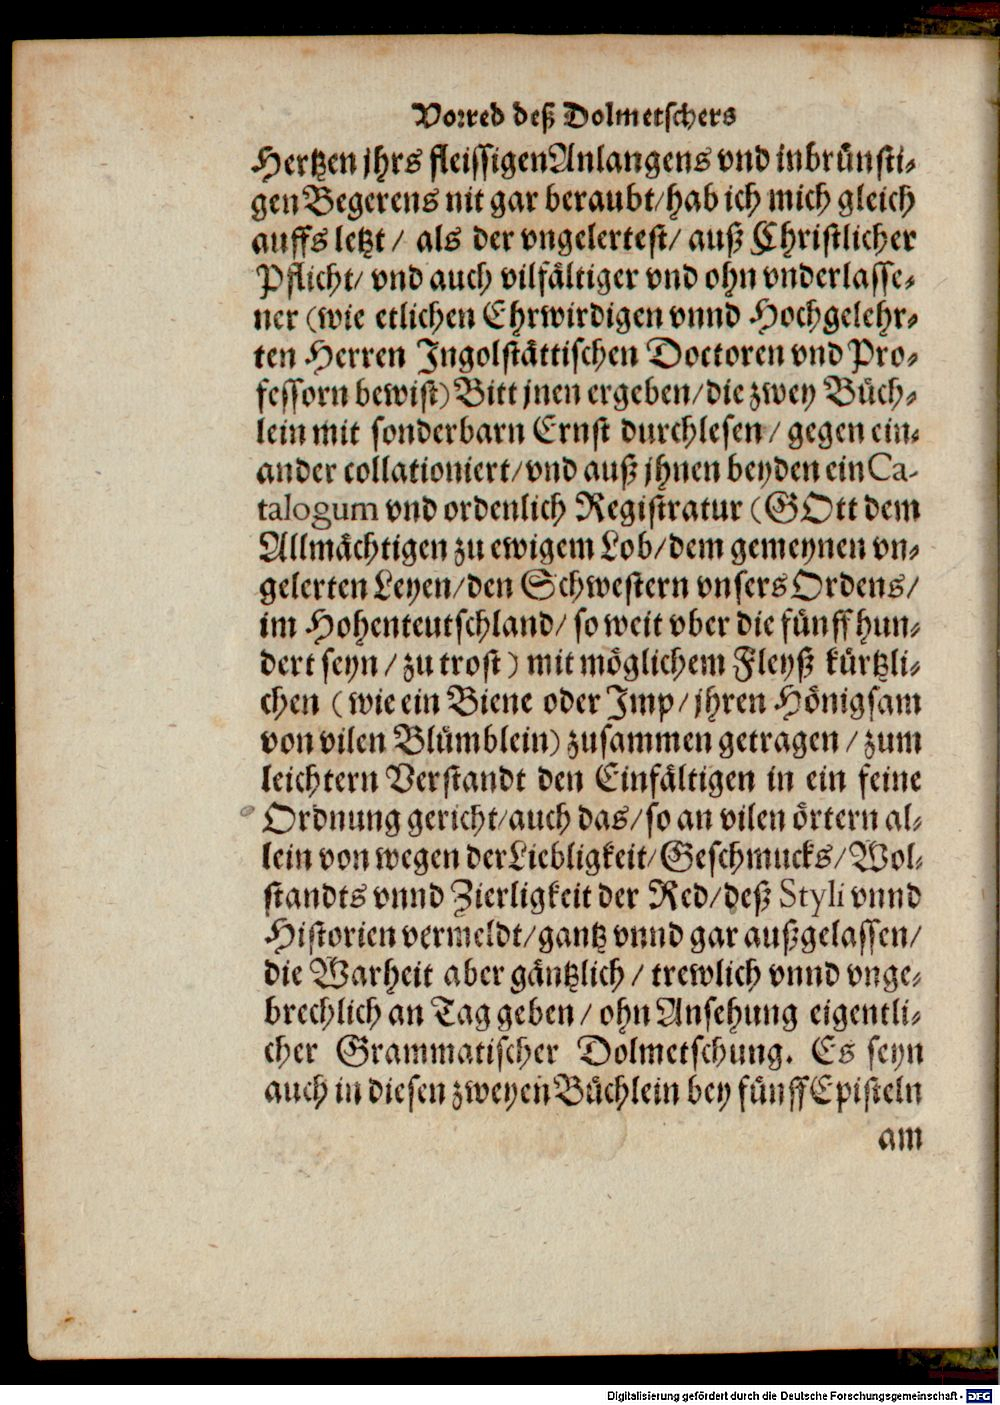 Vorred deß Dolmetschers
Hertzen jhrs fleissigen Anlangens vnd inbrünsti-
gen Begerens nit gar beraubt/ hab ich mich gleich
auffs letzt/ als der vngelertest/ auß Christlicher
Pflicht/ vnd auch vilfältiger vnd ohn vnderlasse-
ner (wie etlichen Ehrwirdigen vnnd Hochgelehr-
ten Herren Ingolstättischen Doctoren vnd Pro-
fessorn bewist) Bitt jnen ergeben/ die zwey Büch-
lein mit sonderbarn Ernst durchlesen/ gegen ein-
ander collationiert/ vnd auß jhnen beyden ein Ca-
talogum vnd ordenlich Registratur (GOtt dem
Allmächtigen zu ewigem Lob/ dem gemeynen vn-
gelerten Leyen/ den Schwestern vnsers Ordens/
im Hohenteutschland/ so weit vber die fünff hun-
dert seyn/ zu trost) mit möglichem Fleyß kürtzli-
chen (wie ein Biene oder Imp/ jhren Hönigsam
von vilen Blümblein) zusammen getragen/ zum
leichtern Verstandt den Einfältigen in ein feine
Ordnung gericht/ auch das/ so an vilen örtern al-
lein von wegen der Liebligkeit/ Geschmucks/ Wol-
standts vnnd Zierligkeit der Red/ deß Styli vnnd
Historien vermeldt/ gantz vnnd gar außgelassen/
die Warheit aber gäntzlich/ trewlich vnnd vnge-
brechlich an Tag geben/ ohn Ansehung eigentli-
cher Grammatischer Dolmetschung. Es seyn
auch in diesen zweyen Büchlein bey fünff Episteln
am
Digitalisierung gefördert durch die Deutsche Forschungsgemeinschaft - DFG